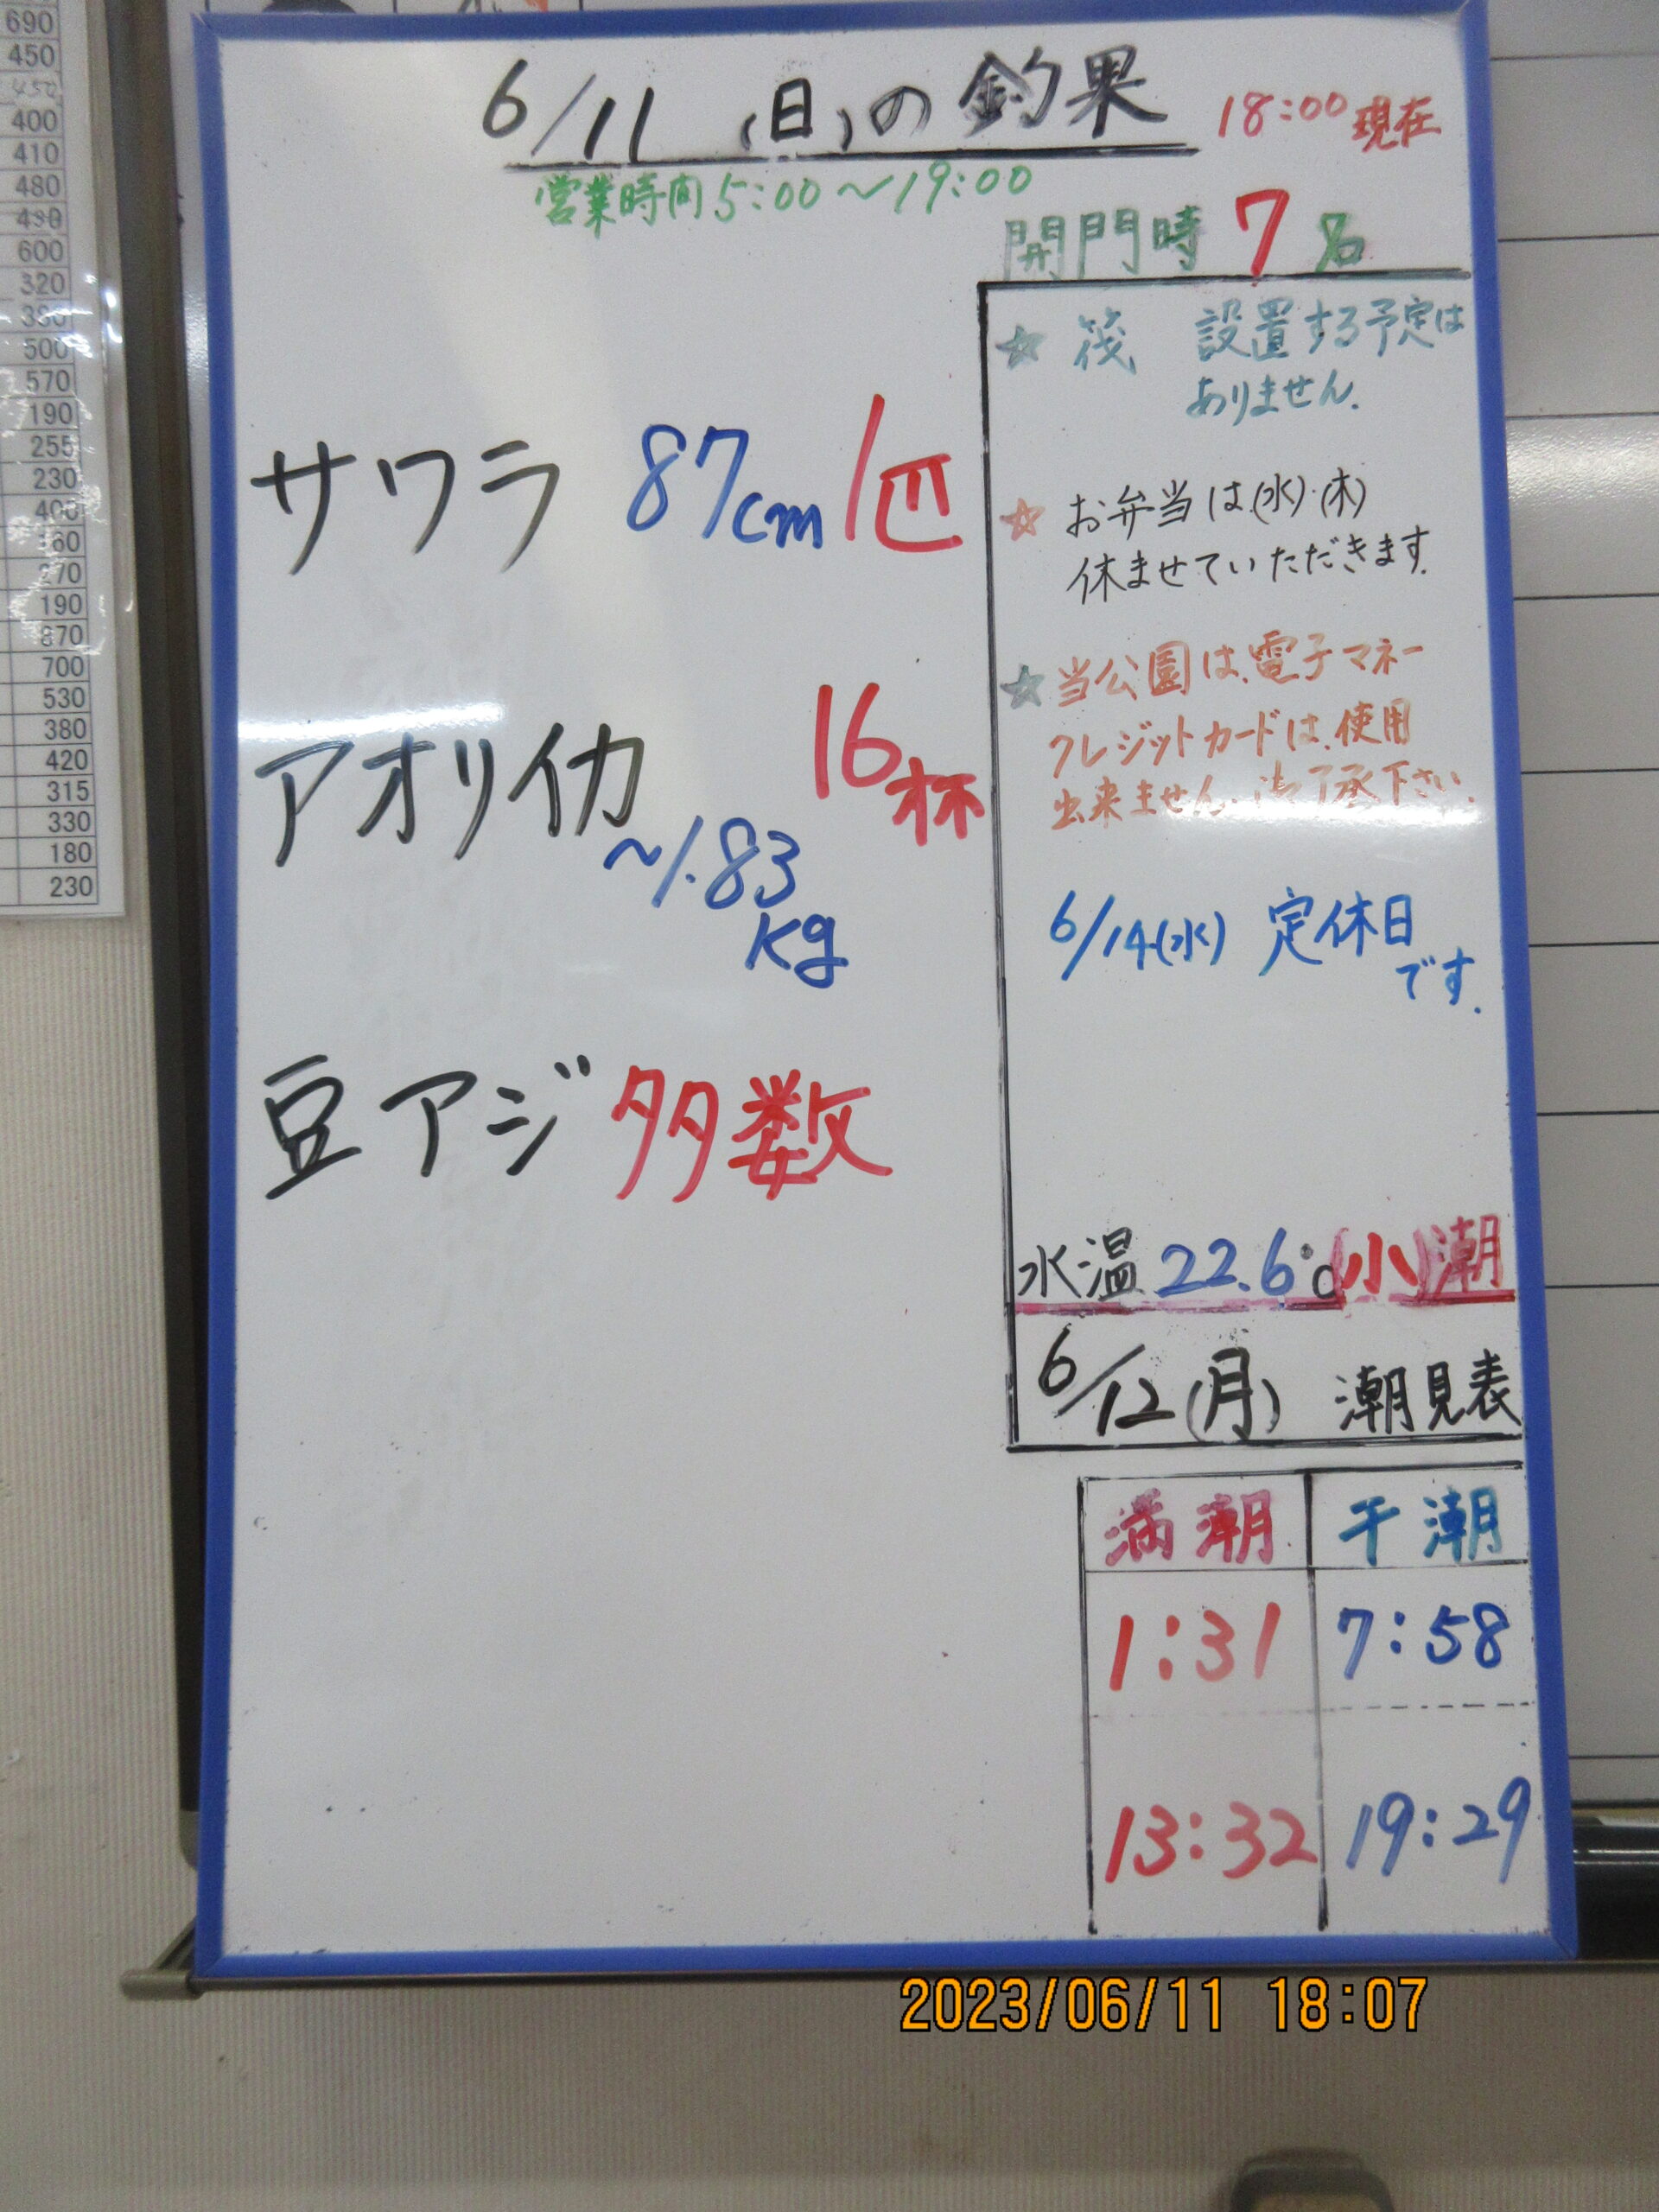 690
450
450
400
410
480
490
600
320
500
570
190
255
230
400
270
190
870
700
530
380
420
315
330
180
230
6/11 (日)の釣果 18:00現在
営業時間5:00~19:00
開門時 7名
☆ 筏 設置する予定は
ありません.
サワラ 87cm 1匹
☆ お弁当は(水)・(木)
休ませていただきます.
☆ 当公園は、電子マネー
クレジットカードは、使用
出来ません、御了承下さい.
アオリイカ 16杯
~1.83
kg
6/14(水) 定休日
です.
豆アジ 多数
水温 22.6℃ (小)潮
6/12(月) 潮見表
満潮 干潮
1:31 7:58
13:32 19:29
2023/06/11 18:07